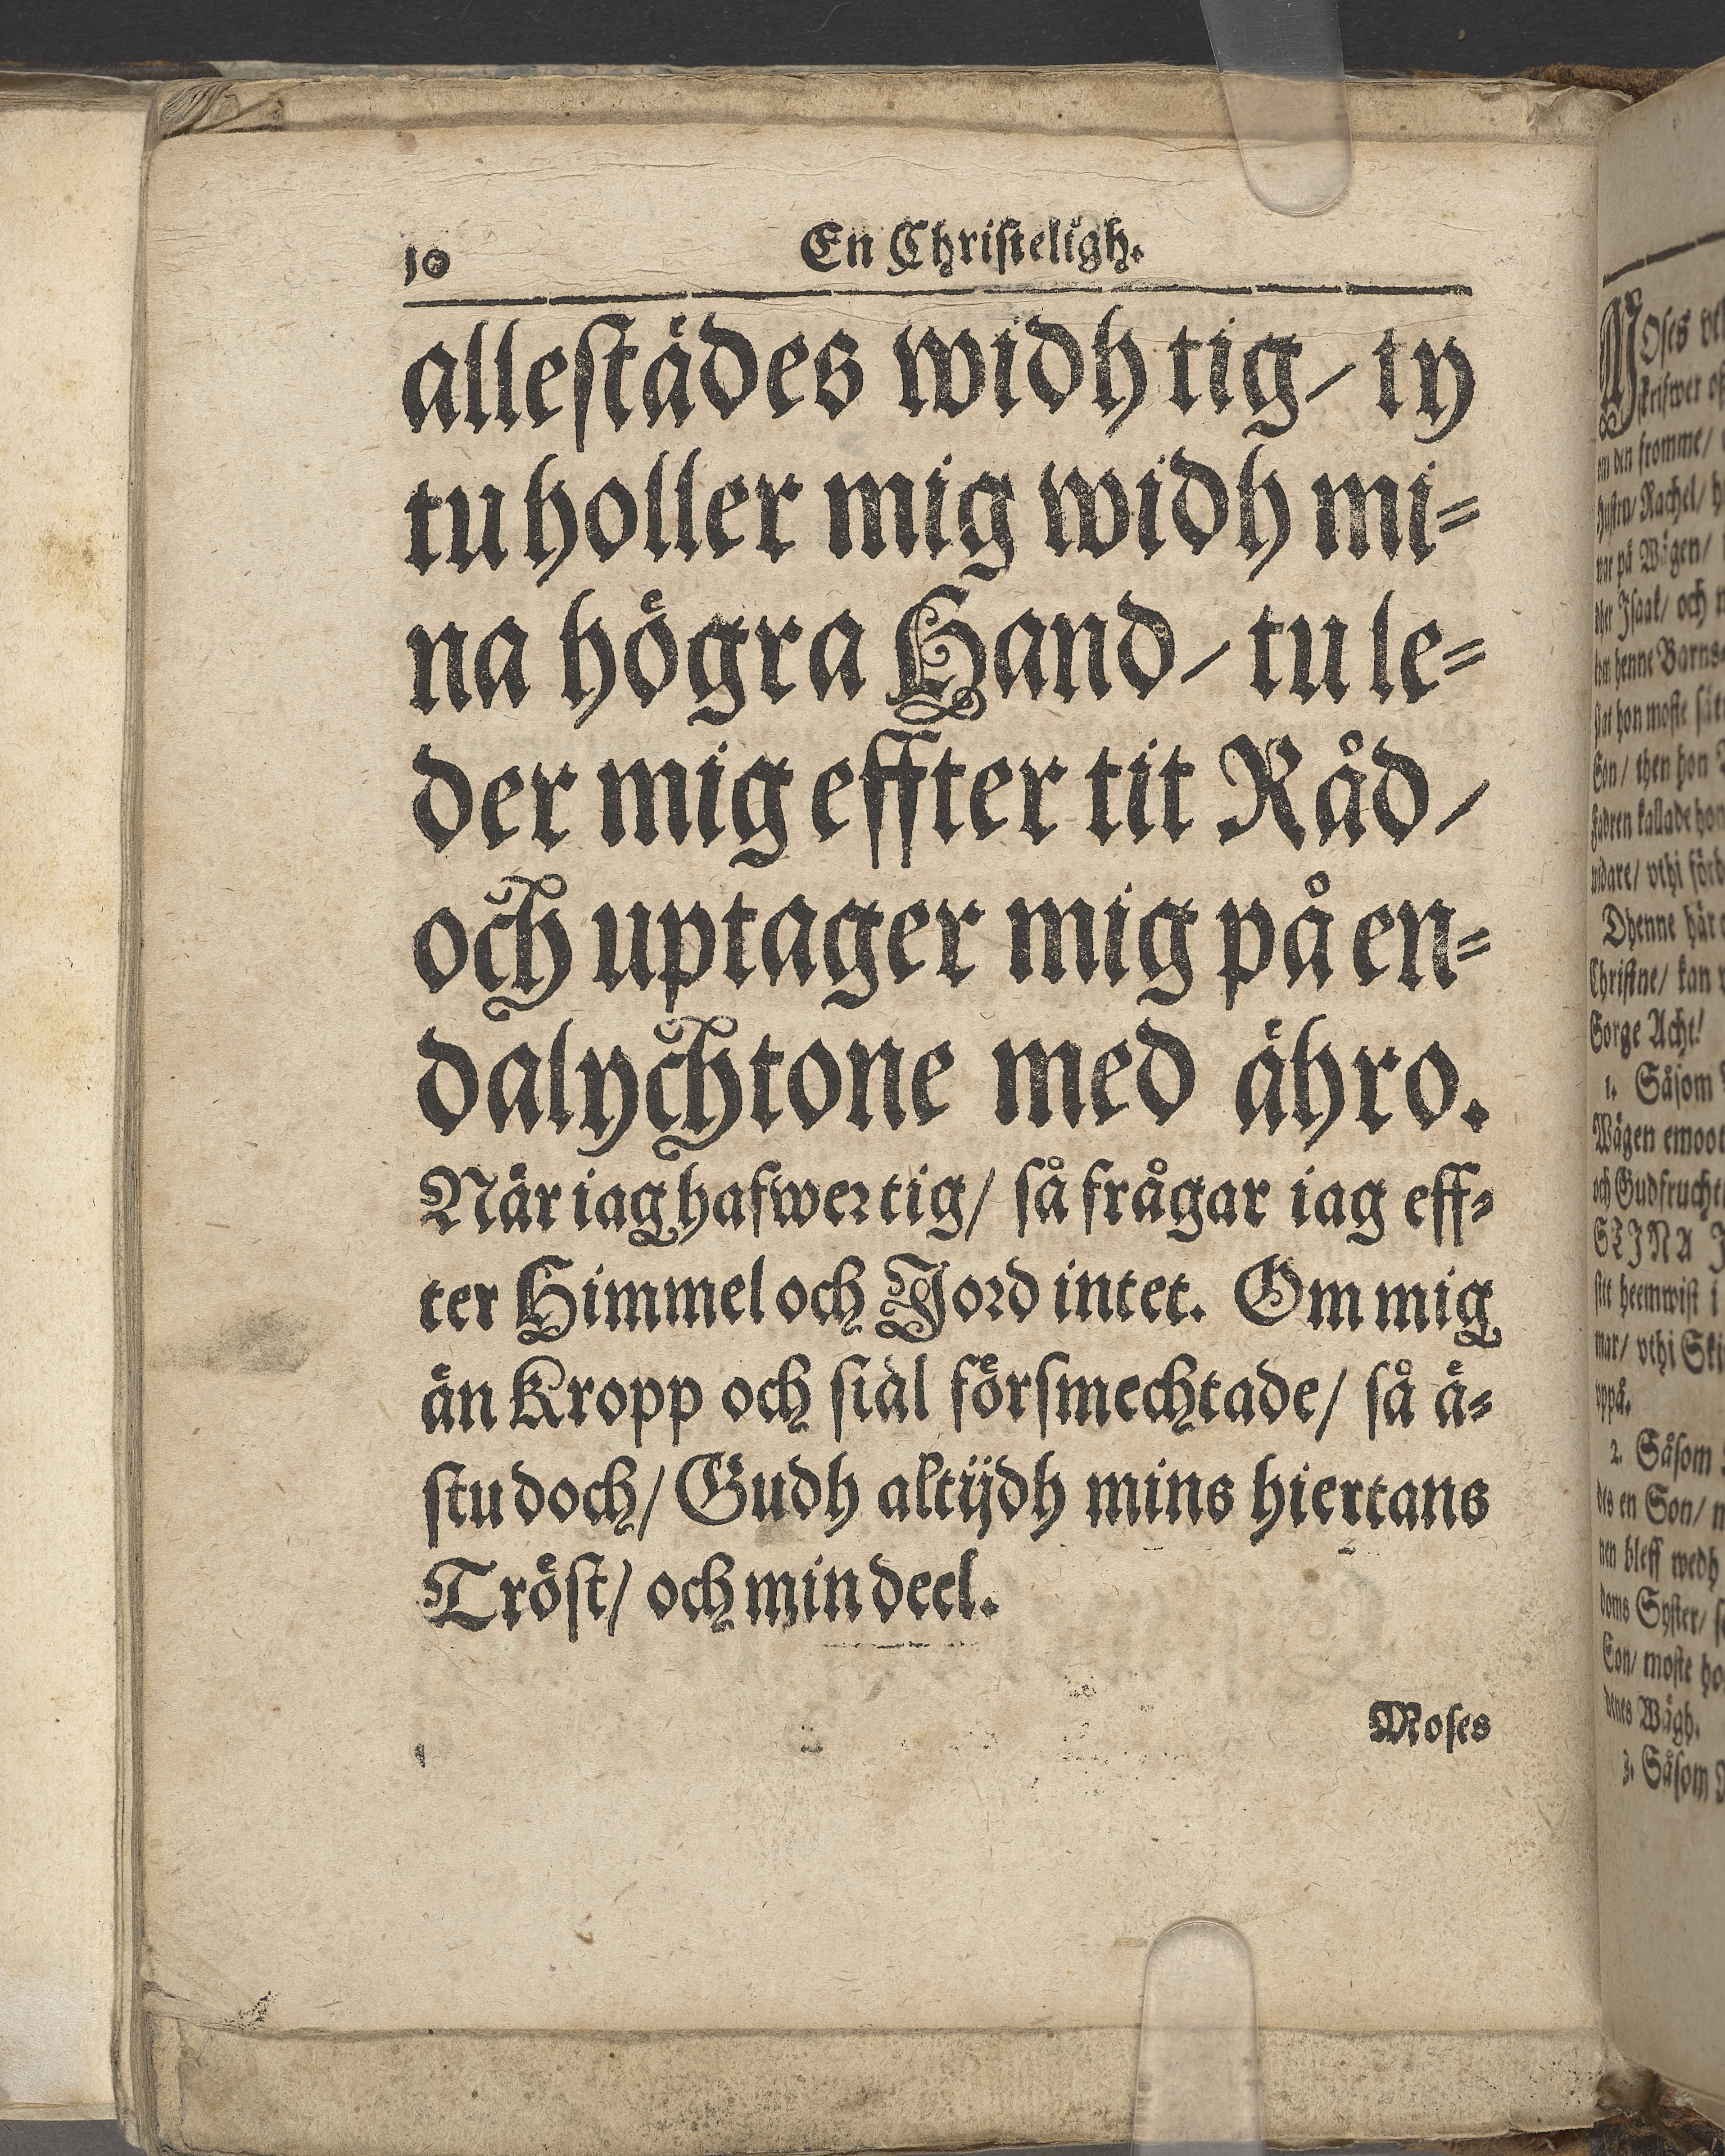 10 En Christeligh.
allestädes widh tig/ ty
tu holler mig widh mi=
na högra Hand/ tu le=
der mig effter tit Råd/
och uptager mig på en=
dalychtone med ähro.
När iag hafwer tig/ så frågar iag eff=
ter Himmel och Jord intet. Om mig
än Kropp och siäl försmechtade/ så ä=
stu doch/ Gudh altijdh mins hiertans
Tröst/ och min deel.
Moses
Moses
skrifwer
den fromme/
hustru/ Rachel/
på Wägen/
Isaak/ och
henne Barns=
hon moste
Son/ then hon
Fadren kallade
widare/ vthi
Dhenne här
Christne/ kan
Sorge Acht!
1. Såsom
Wägen emoot
och Gudfrucht
STINA
sitt heemwist i
vthi
vppå.
2. Såsom
des en Son/
bleff wedh
doms Syster/
Son/ moste
denes Wägh.
3. Såsom